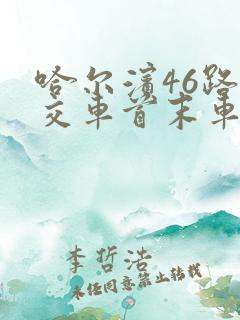 哈尔滨46路
交车首末车
李哲浩
未经同意禁止转载